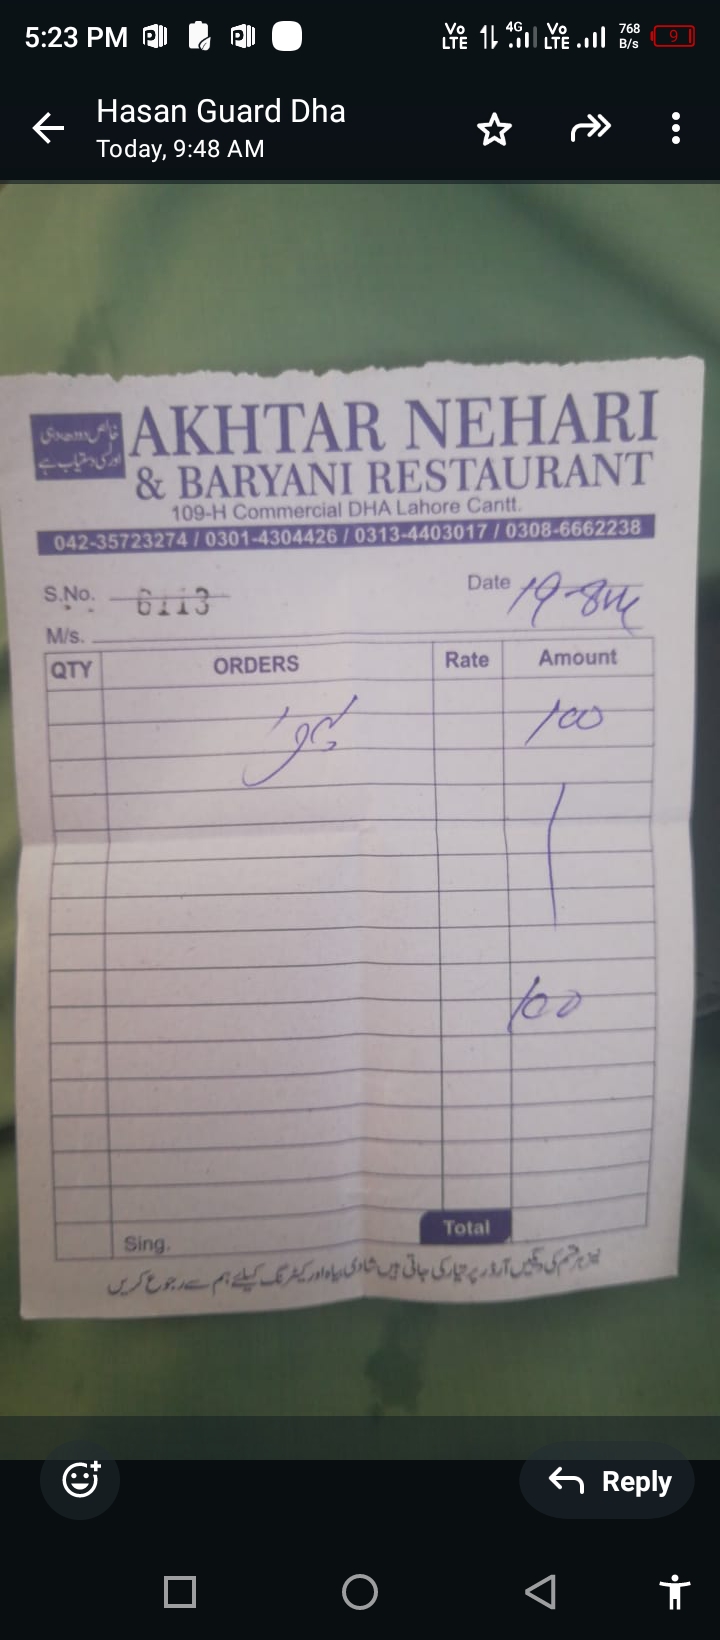 5:23 PM
Vo LTE 4G Vo LTE 768 B/s 9
Hasan Guard Dha
Today, 9:48 AM
خالص دودھ دہی
اور لسی دستیاب ہے
AKHTAR NEHARI
& BARYANI RESTAURANT
109-H Commercial DHA Lahore Cantt.
042-35723274 / 0301-4304426 / 0313-4403017 / 0308-6662238
S.No. 6113
Date 19-8
M/s.
QTY ORDERS Rate Amount
100
100
Total
Sing.
نیز ہر قسم کی دیگیں آرڈر پر تیار کی جاتی ہیں شادی بیاہ اور کیٹرنگ کیلئے ہم سے رجوع کریں
Reply